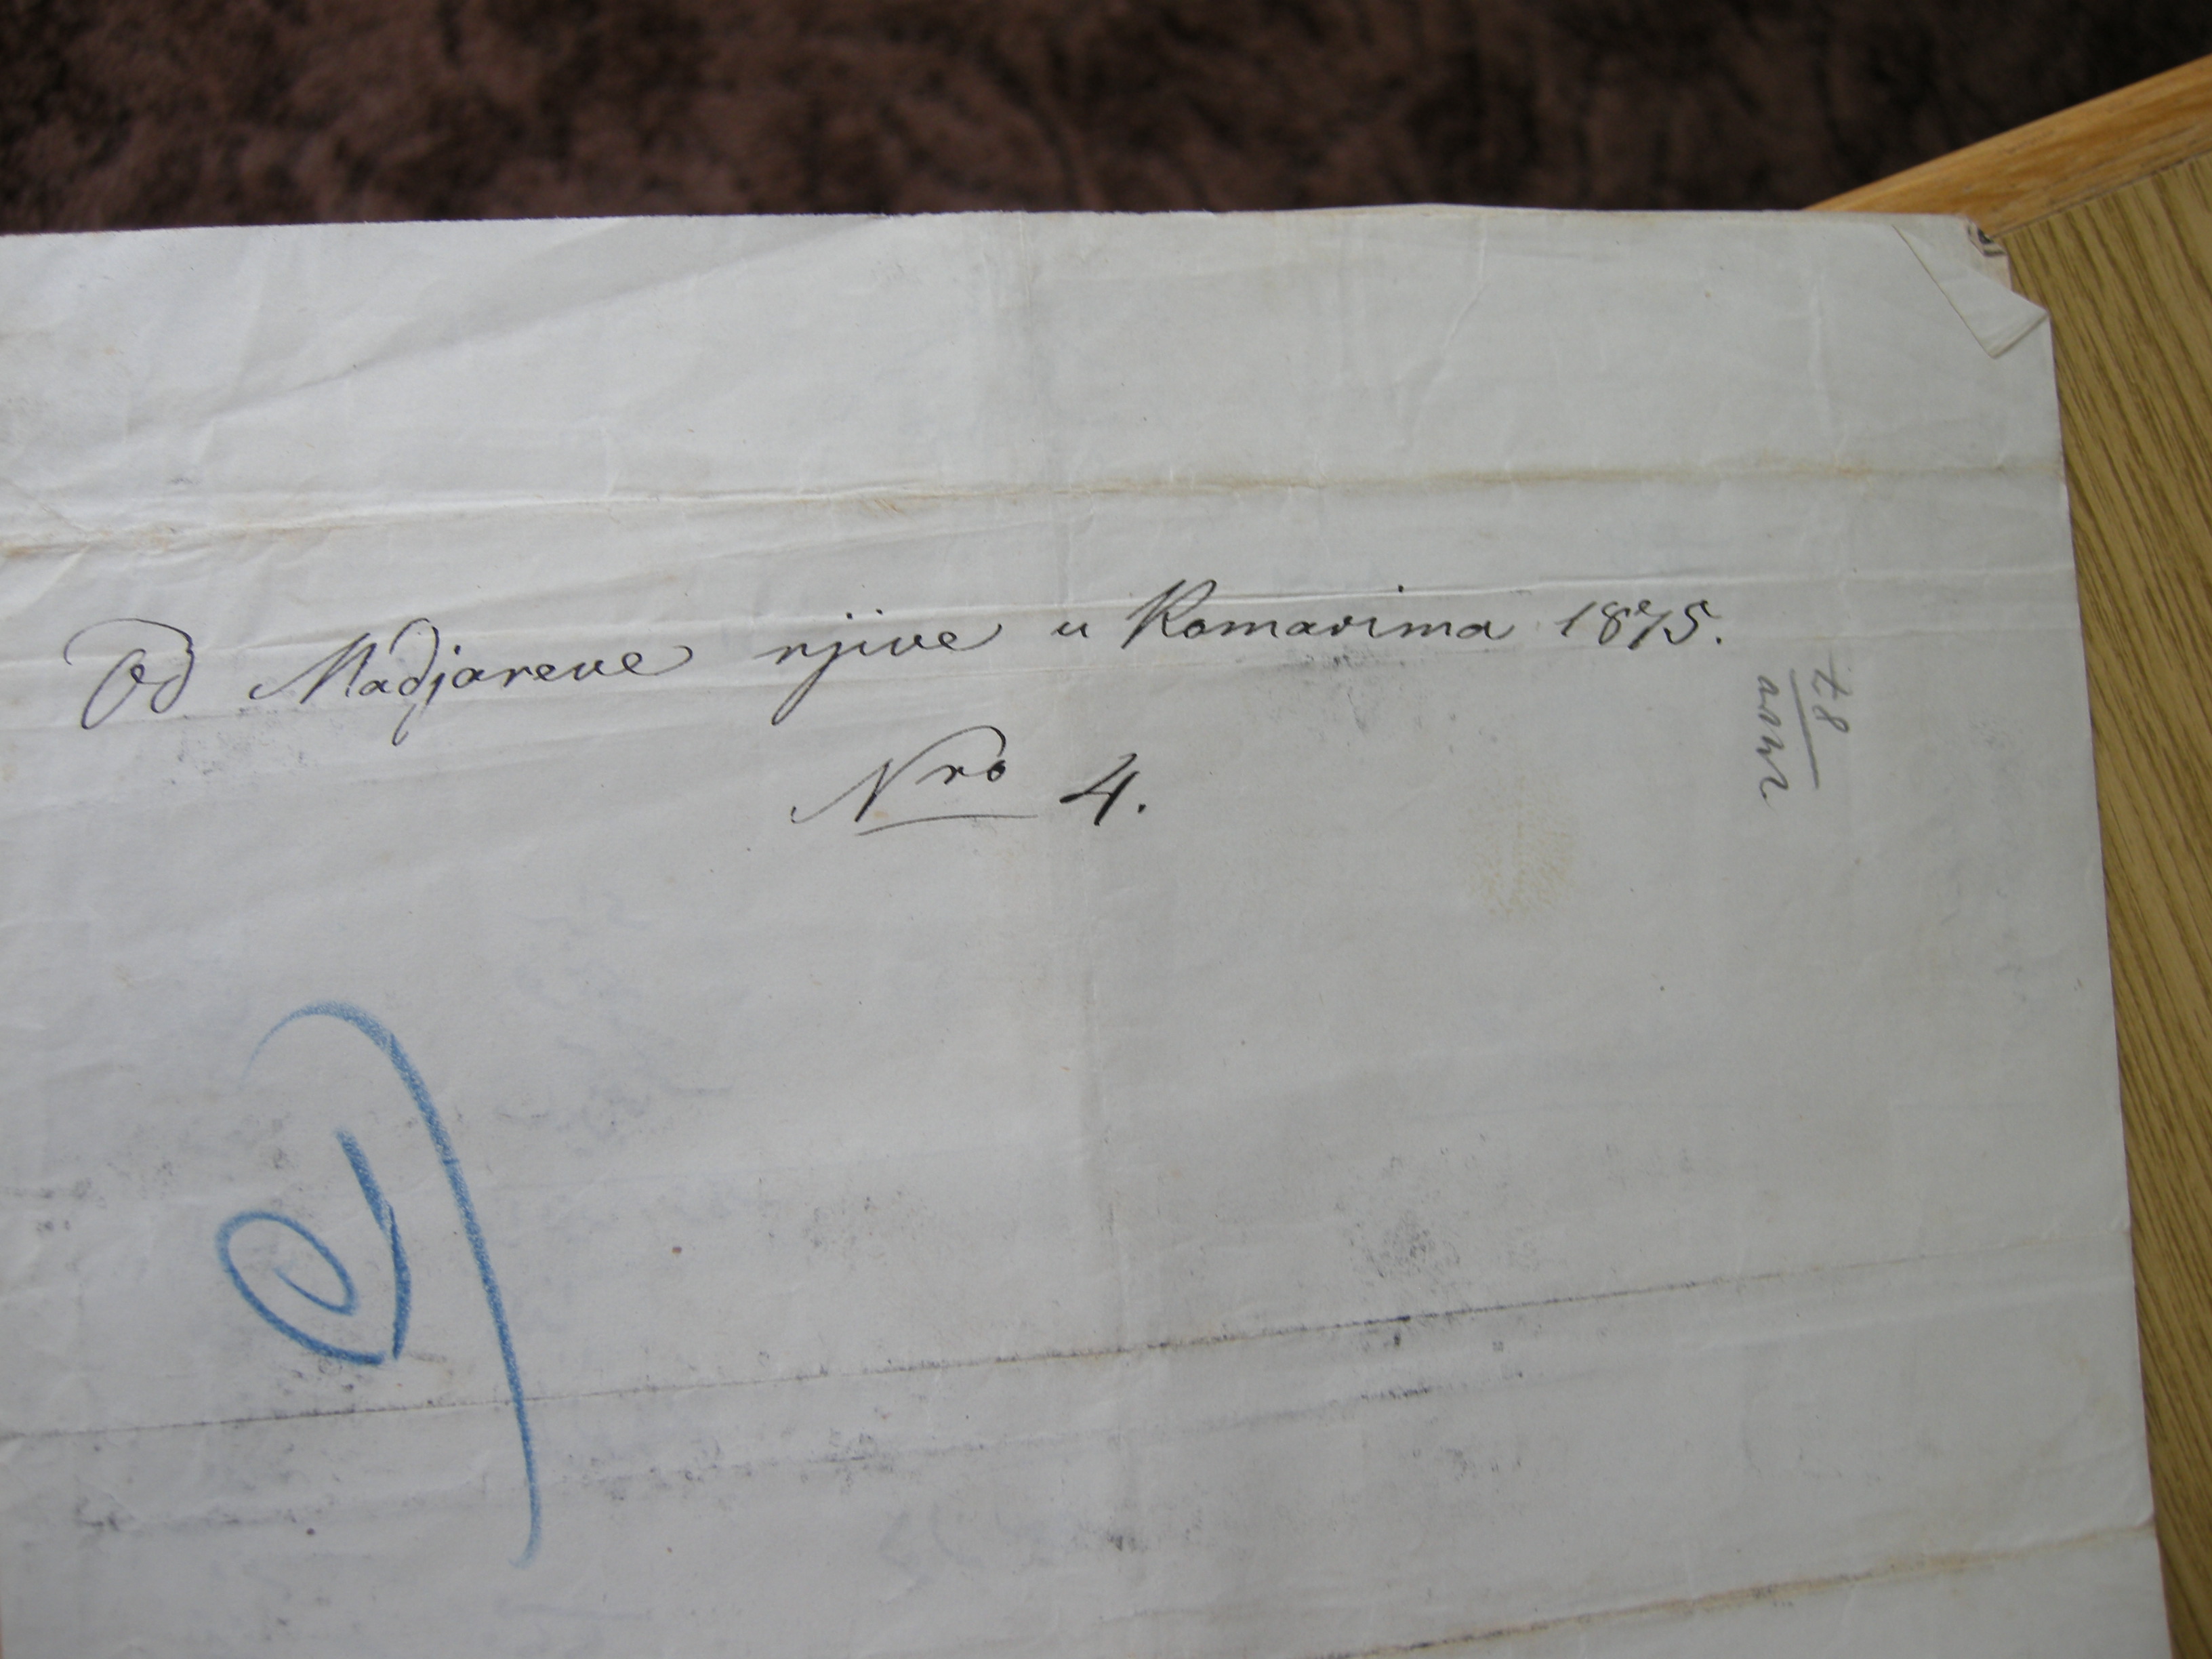 Od Madjareve njive u Komarima 1875.
Nro 4.